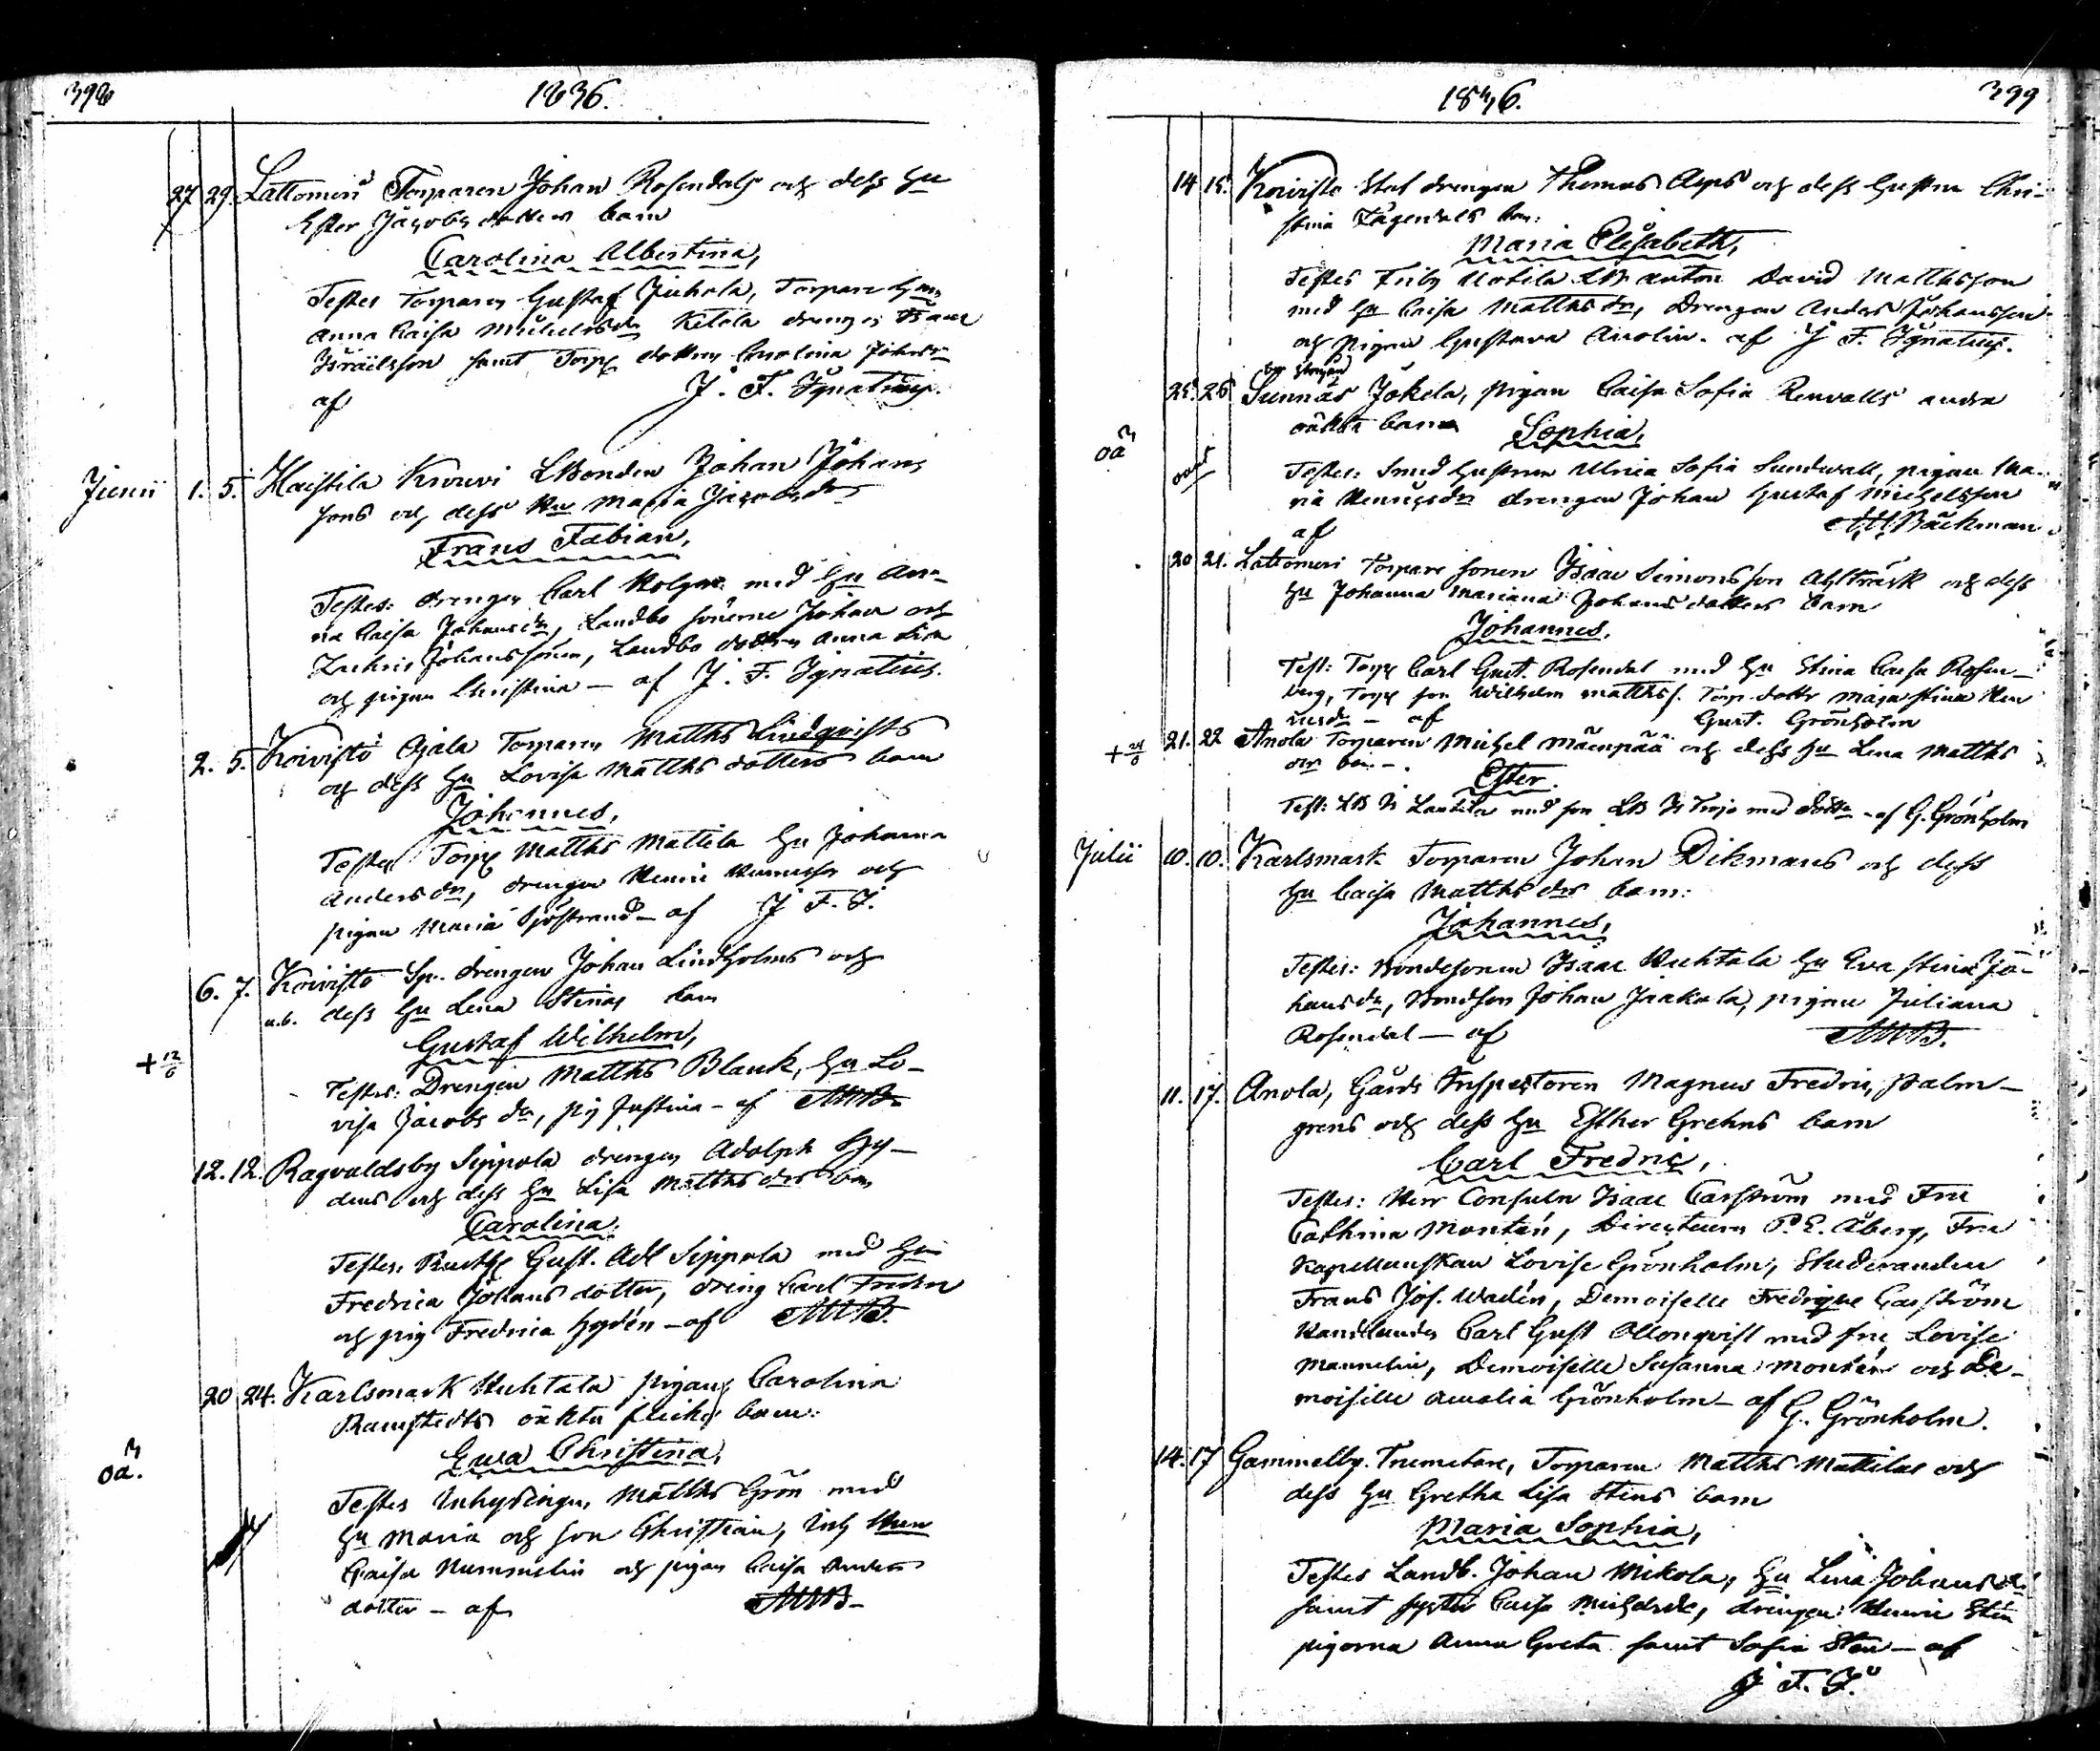 398
1836.
27 29. Lattomeri Torparen Johan Rosendals och dess Hu
Ester Jacobsdotters barn
Carolina Albertina,
Testes Torparen Gustaf Juhola, Torpare
Anna Caisa Michelsdr Ketola drengen Isaac
Israelsson samt Torp dottren Carolina Johansdr
af J. F. Ignatius.
Junii 1. 5. Haistila Krouvi LBonden Johan Johans
sons och dess Hu Maria Jacobsdrs
Frans Fabian,
Testes: drengen Carl med Hu An-
na Caisa Johansdr, Landbo sönerne Johan och
Zachris Johanssöner, Landbo dottren Anna Lisa
och pigan Christina — af J. F. Ignatius.
2. 5. Koivisto Ojala Torparen Matths Lindqvists
och dess Hu Lovisa Matths dotters barn
Johannes,
Testes Torp Matths Mattila Hu Johanna
Andersdr, drengen Henric Henricsson och
pigan Maria Sjöstrand — af J. F. I.
6. 7. Koivisto Sp. drengen Johan Lindholms och
u.b. dess Hu Lena Stinas barn
Gustaf Wilhelm,
+ 12/6
Testes: Drengen Matths Blank, Hu Lo-
visa Jacobs dr, pig Justina — af AWB
12. 12. Ragvaldsby Seppola drengen Adolph Hy-
dens och dess Hu Lisa Matths drs barn
Carolina.
Testes, Rusth Gust. Adl Seppola med Hu
Fredrica Johans dotter, dreng Carl
och pig Fredrica Hydén — af AWB.
20 24. Karlsmark Huhtala pigans Carolina
Ramstedts oäkta flicke barn:
Ewa Christina,
oä.
Testes Inhysingen, Matths Grön med
Hu Maria och son Christian, Inh Hun
Caisa Nummelin och pigan Caisa Anders
dotter — af AWB—
1836.
399
14 15. Koivisto Stat drengen Thomas Asps och dess Hustru Chri-
stina Fägervals barn:
Maria Elisabeth,
Testes Friby Uotila LB Anton David Matthsson
med Hu Caisa Matthsdr, Drengen Anders Johansson
och pigan Gustava Anolin. af J. F. Ignatius.
25. 26 Sunnäs Jokela, pigan Caisa Sofia Renvalls andra
oäkta barn
Sophia,
oä
Testes: Smed Hustrun Ulrica Sofia Sundvall, pigan Ma-
ria Henricsdr drengen Johan Gustaf Michelsson
af AWBäckman
20 21. Lattomeri Torpare sonen Isaac Simonsson Ahlträsk och dess
Hu Johanna Mariana Johans dotters barn
Johannes.
Test: Torp Carl Gust. Rosendal med Hu Stina Caisa Rosen-
berg, Torp son Wilhelm Matthss. Torp dottr Maja Stina Hen
ricsdr — af Gust. Grönholm
+ 24/6
21. 22 Anola Torparen Michel Mäenpää och dess Hu Lena Matths
drs barn —.
Ester.
Test: LB Is Lautila med son LB med dottr — af G. Grönholm
Julii 10. 10. Karlsmark Torparen Johan Dikmans och dess
Hu Caisa Matths drs barn:
Johannes,
Testes: Bondesonen Isaac Huhtala Hu Eva Stina Jo-
hansdr, Bondson Johan Jaakola, pigan Juliana
Rosendal — af AWB.
11. 17. Anola, Gårds Inspectoren Magnus Fredric Palm-
grens och dess Hu Esther Grehns barn
Carl Fredric,
Testes: Herr Consuln Isaac Carström med Fru
Cathrina Montén, Directeuren P. E. Åberg, Fru
Kapellanskan Lovise Grönholm, Studeranden
Frans Jos. Wadén, Demoiselle Fredrique Carström
Handlanden Carl Gust Ollonqvist med fru Lovise
Mannelin, Demoiselle Susanna Montén och De-
moiselle Amalia Grönholm — af G. Grönholm.
14. 17 Gammelby. Trumetare, Torparen Matths Mattilas och
dess Hu Gretha Lisa Stens barn
Maria Sophia,
Testes Landb. Johan Mikola, Hu Lena Johansdr
samt syster Caisa Michelsdr, drengen: Henric Sten
pigorna Anna Greta samt Sofia Sten — af
J. F. I.